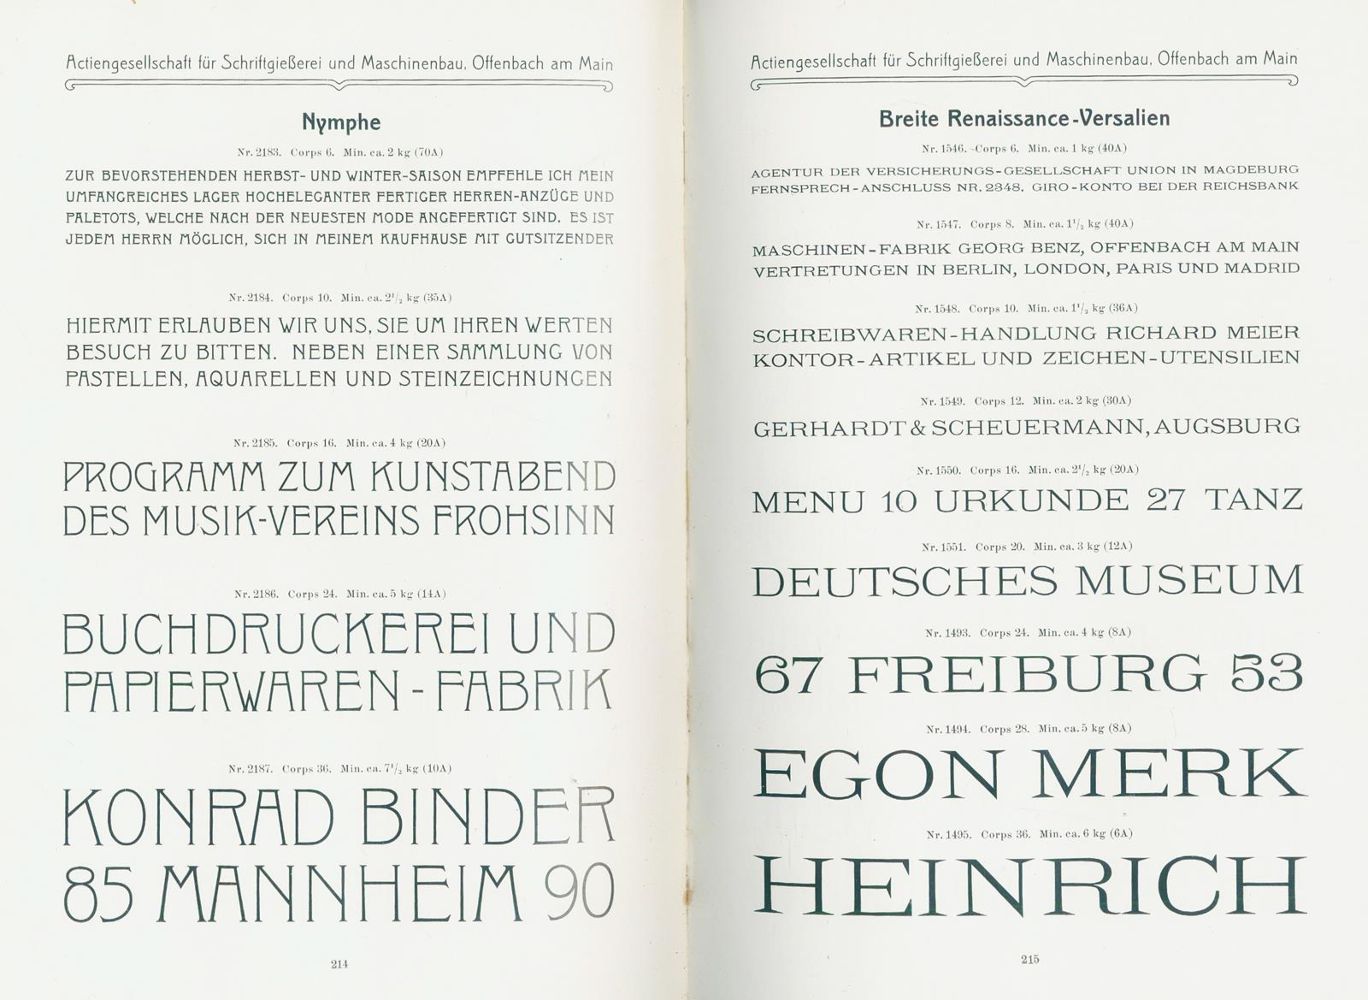 Actiengesellschaft für Schriftgießerei und Maschinenbau, Offenbach am Main
Nymphe
Nr. 2183. Corps 6. Min. ca. 2 kg (70A)
ZUR BEVORSTEHENDEN HERBST- UND WINTER-SAISON EMPFEHLE ICH MEIN
UMFANGREICHES LAGER HOCHELEGANTER FERTIGER HERREN-ANZÜGE UND
PALETOTS, WELCHE NACH DER NEUESTEN MODE ANGEFERTIGT SIND. ES IST
JEDEM HERRN MÖGLICH, SICH IN MEINEM KAUFHAUSE MIT GUTSITZENDER
Nr. 2184. Corps 10. Min. ca. 2 1/2 kg (35A)
HIERMIT ERLAUBEN WIR UNS, SIE UM IHREN WERTEN
BESUCH ZU BITTEN. NEBEN EINER SAMMLUNG VON
PASTELLEN, AQUARELLEN UND STEINZEICHNUNGEN
Nr. 2185. Corps 16. Min. ca. 4 kg (20A)
PROGRAMM ZUM KUNSTABEND
DES MUSIK-VEREINS FROHSINN
Nr. 2186. Corps 24. Min. ca. 5 kg (14A)
BUCHDRUCKEREI UND
PAPIERWAREN-FABRIK
Nr. 2187. Corps 36. Min. ca. 7 1/2 kg (10A)
KONRAD BINDER
85 MANNHEIM 90
214
Actiengesellschaft für Schriftgießerei und Maschinenbau, Offenbach am Main
Breite Renaissance-Versalien
Nr. 1546. Corps 6. Min. ca. 1 kg (40A)
AGENTUR DER VERSICHERUNGS-GESELLSCHAFT UNION IN MAGDEBURG
FERNSPRECH-ANSCHLUSS NR. 2348. GIRO-KONTO BEI DER REICHSBANK
Nr. 1547. Corps 8. Min. ca. 1 1/2 kg (40A)
MASCHINEN-FABRIK GEORG BENZ, OFFENBACH AM MAIN
VERTRETUNGEN IN BERLIN, LONDON, PARIS UND MADRID
Nr. 1548. Corps 10. Min. ca. 1 1/2 kg (36A)
SCHREIBWAREN-HANDLUNG RICHARD MEIER
KONTOR-ARTIKEL UND ZEICHEN-UTENSILIEN
Nr. 1549. Corps 12. Min. ca. 2 kg (30A)
GERHARDT & SCHEUERMANN, AUGSBURG
Nr. 1550. Corps 16. Min. ca. 2 1/2 kg (20A)
MENU 10 URKUNDE 27 TANZ
Nr. 1551. Corps 20. Min. ca. 3 kg (12A)
DEUTSCHES MUSEUM
Nr. 1493. Corps 24. Min. ca. 4 kg (8A)
67 FREIBURG 53
Nr. 1494. Corps 28. Min. ca. 5 kg (8A)
EGON MERK
Nr. 1495. Corps 36. Min. ca. 6 kg (6A)
HEINRICH
215